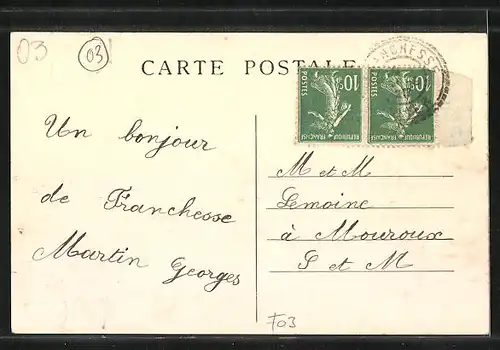 03
03
CARTE POSTALE
NCHESSE
10c
POSTES
REPUBLIQUE FRANÇAISE
10c
POSTES
REPUBLIQUE FRANÇAISE
Un bonjour
de Franchesse
Martin Georges
M et M
Lemoine
à Mouroux
S et M
F03